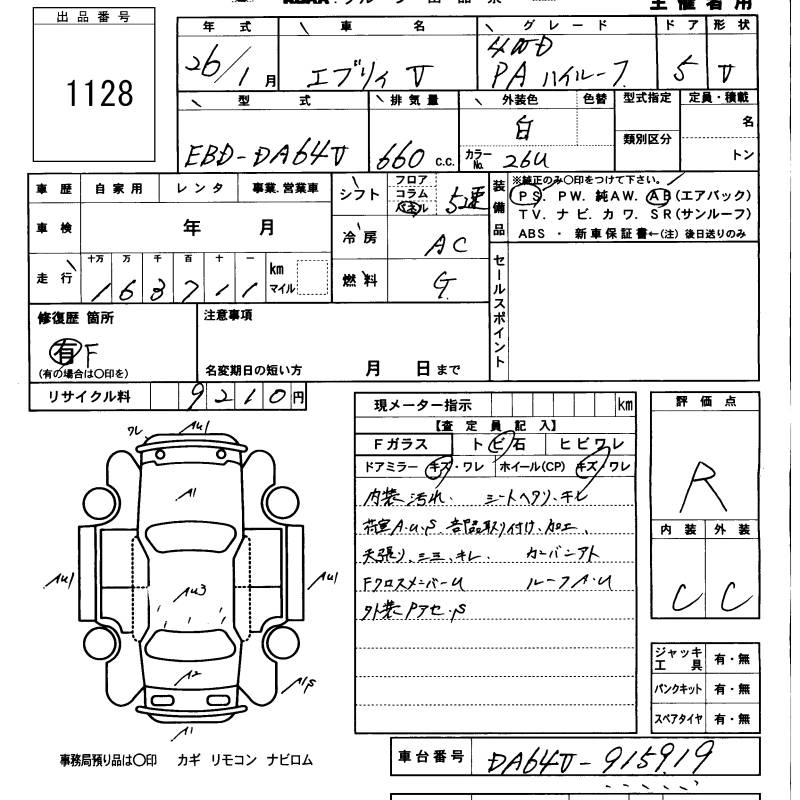 出品番号
1128
主催者用
年式 車名 グレード ドア 形状
26/1月 エブリィV 4WD PA ハイルーフ 5 V
型式 排気量 外装色 色替 型式指定 定員・積載
EBD-DA64V 660 c.c. 白 類別区分 名
カラーNo. 26U トン
車歴 自家用 レンタ 事業.営業車
車検 年 月
走行 十万 万 千 百 十 一 km マイル
163711
シフト フロア コラム 5速
冷房 AC
燃料 G
装備品
※純正のみ〇印をつけて下さい。
PS. PW. 純AW. AB(エアバック)
TV. ナビ. カワ. SR(サンルーフ)
ABS ・ 新車保証書←(注) 後日送りのみ
セールスポイント
修復歴 箇所
有 F
(有の場合は〇印を)
注意事項
名変期日の短い方 月 日まで
リサイクル料 9210円
現メーター指示 km
【査定員記入】
Fガラス トビ石 ヒビワレ
ドアミラー キズ・ワレ ホイール(CP) キズ・ワレ
内装汚れ、シートヘタリ、キレ
荷室A.U.S 部品取り付け、加工、
天張り、ミミ、キレ、カーバンアト
FクロスメンバーU ルーフA.U
外装Pアセ.S
評価点
R
内装 外装
C C
ジャッキ工具 有・無
パンクキット 有・無
スペアタイヤ 有・無
ワレ AU1
A1
AU1 AU3 AU1
A2
A1S
A1
事務局預り品は〇印 カギ リモコン ナビロム
車台番号 DA64V-915919